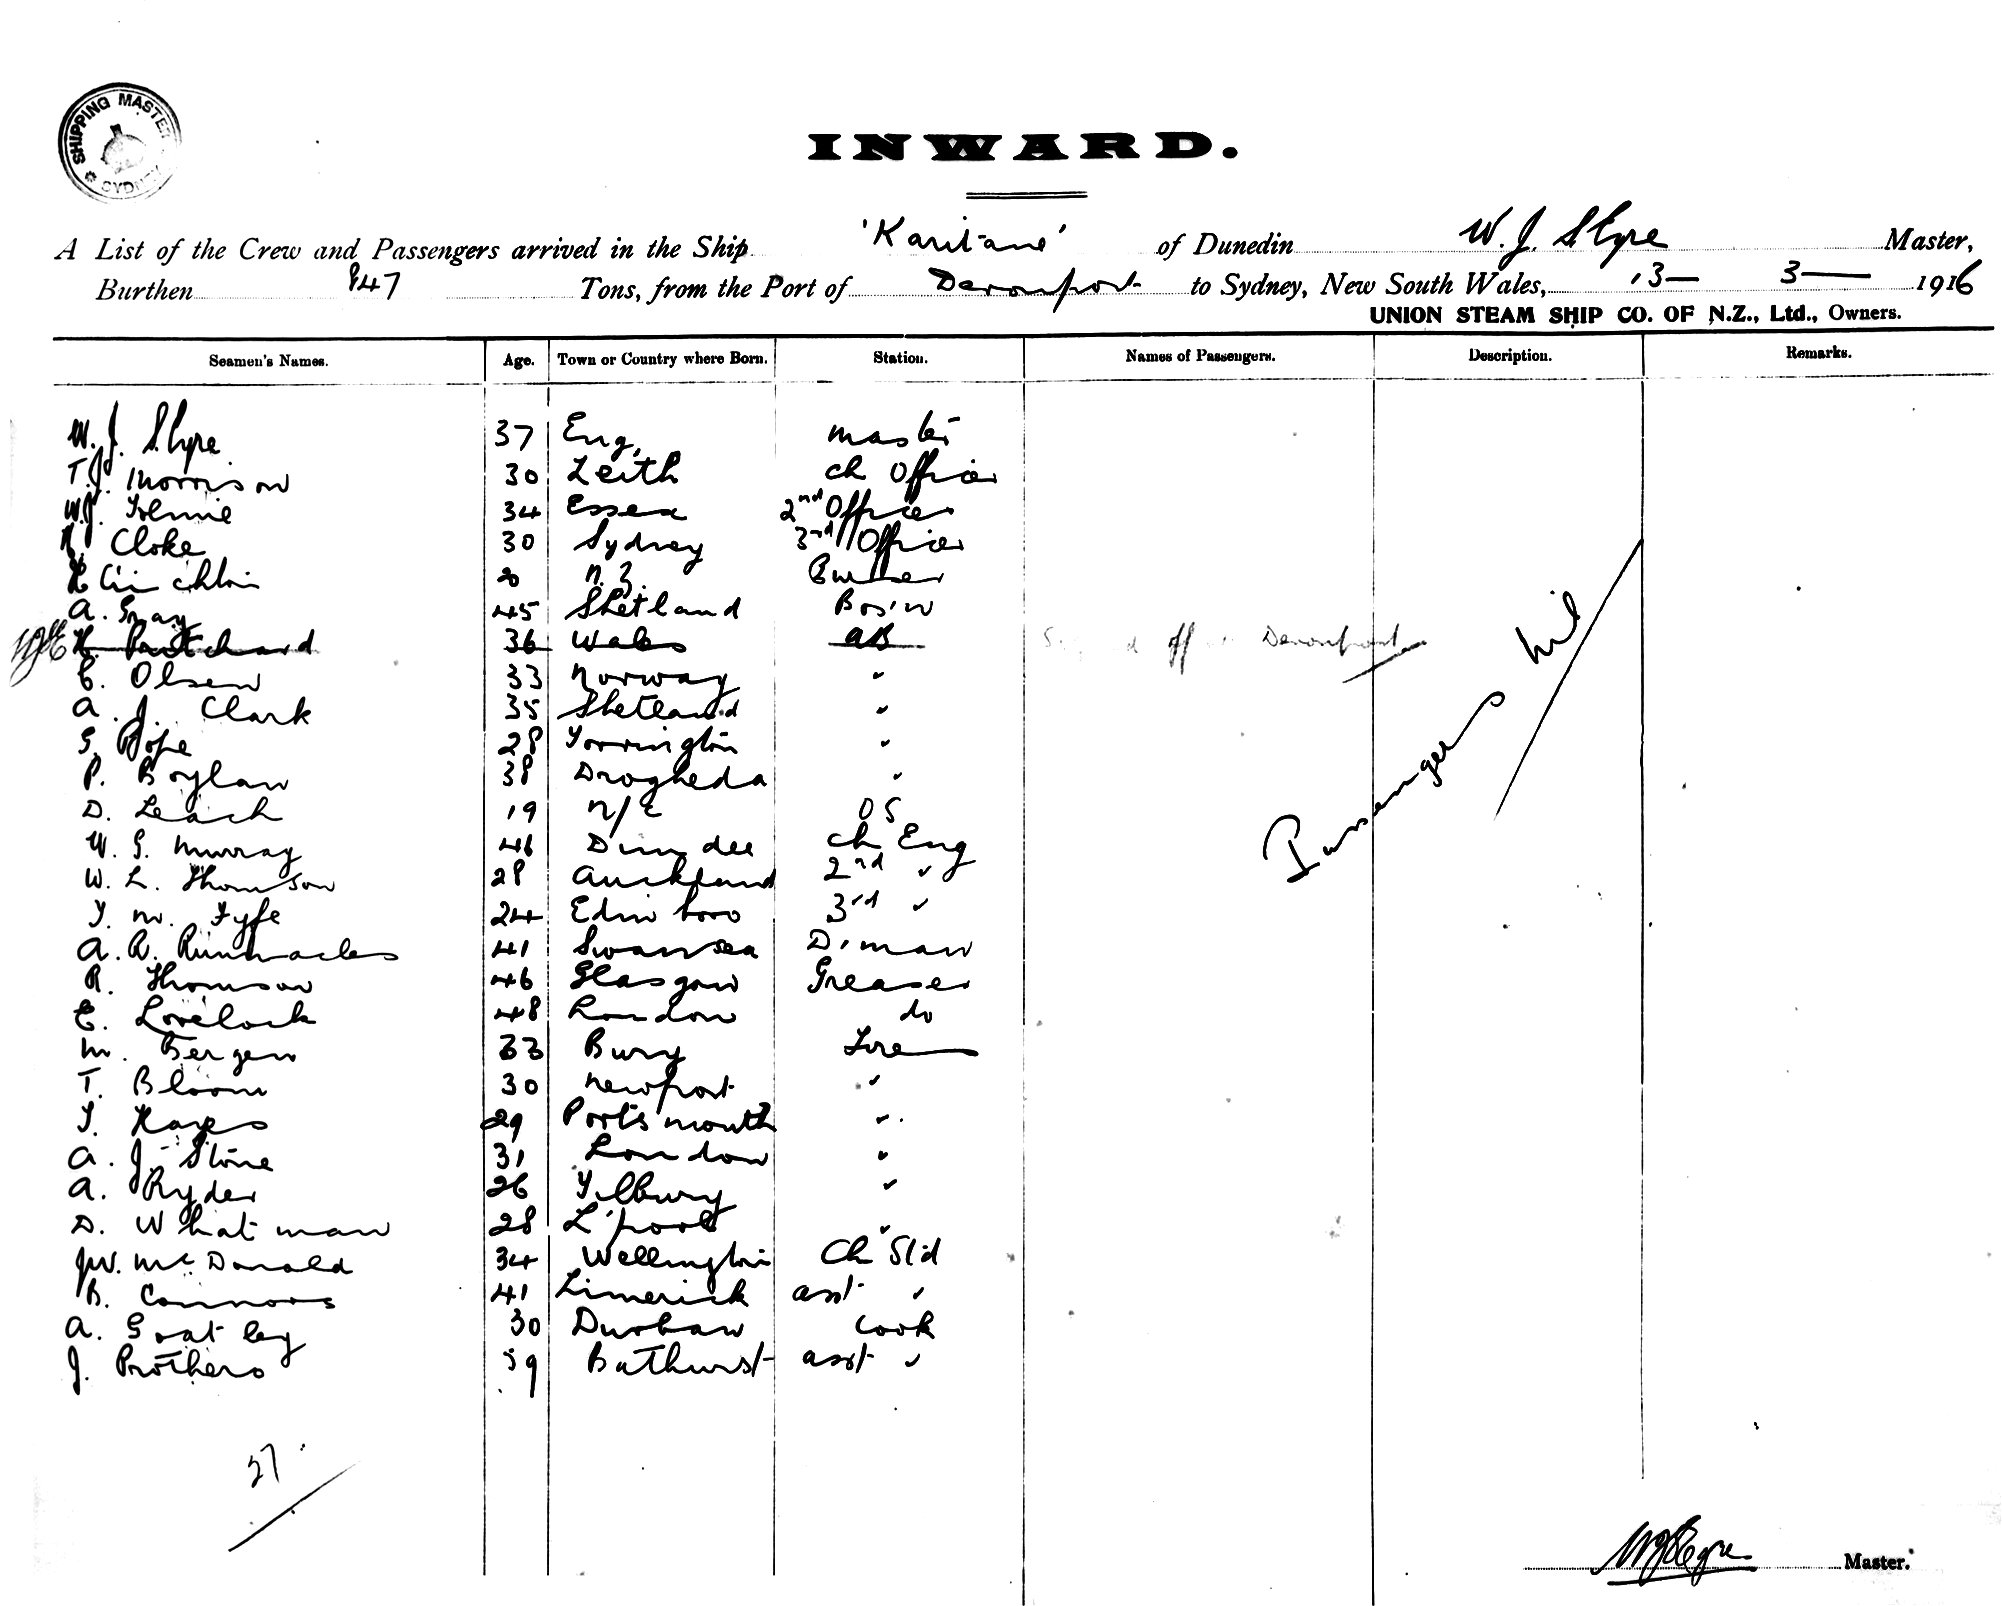 SHIPPING MASTER SYDNEY
INWARD.
A List of the Crew and Passengers arrived in the Ship 'Karitane' of Dunedin W. J. Master,
Burthen 847 Tons, from the Port of Devonport to Sydney, New South Wales, 13 — 3 — 1916
UNION STEAM SHIP CO. OF N.Z., Ltd., Owners.
Seamen's Names. Age. Town or Country where Born. Station. Names of Passengers. Description. Remarks.
W. J. 37 Eng, master
T. J. Morrison 30 Leith ch Officer
W. J. 34 Essex 2nd Officer
Cloke 30 Sydney 3rd Officer
20 N. Z.
A. Gray 45 Shetland Bos'n
Pritchard 36 Wales AB Signed off at Devonport
C. Olsen 33 Norway "
A. J. Clark 35 Shetland "
G. Pope 28 Torrington "
P. Boylan 38 Drogheda "
D. Leach 19 N/C OS
W. G. Murray 46 Dundee Ch Eng
W. L. Thomson 28 Auckland 2nd "
T. M. Fyfe 24 Edinboro 3rd "
A. R. Runnacles 41 Swansea D. man
R. Thomson 46 Glasgow Greaser
E. Lovelock 48 London do
M. Bergen 33 Bury Fire
T. Bloom 30 Newport "
T. Hayes 29 Portsmouth "
A. J. Stone 31 London "
A. Ryder 26 Tilbury "
D. Whatman 28 L'pool "
J W. McDonald 34 Wellington Ch Std
B. Connors 41 Limerick asst "
A. Goatley 30 Durban Cook
J. Prothero 59 Bathurst asst "
Passengers Nil
27
Master.